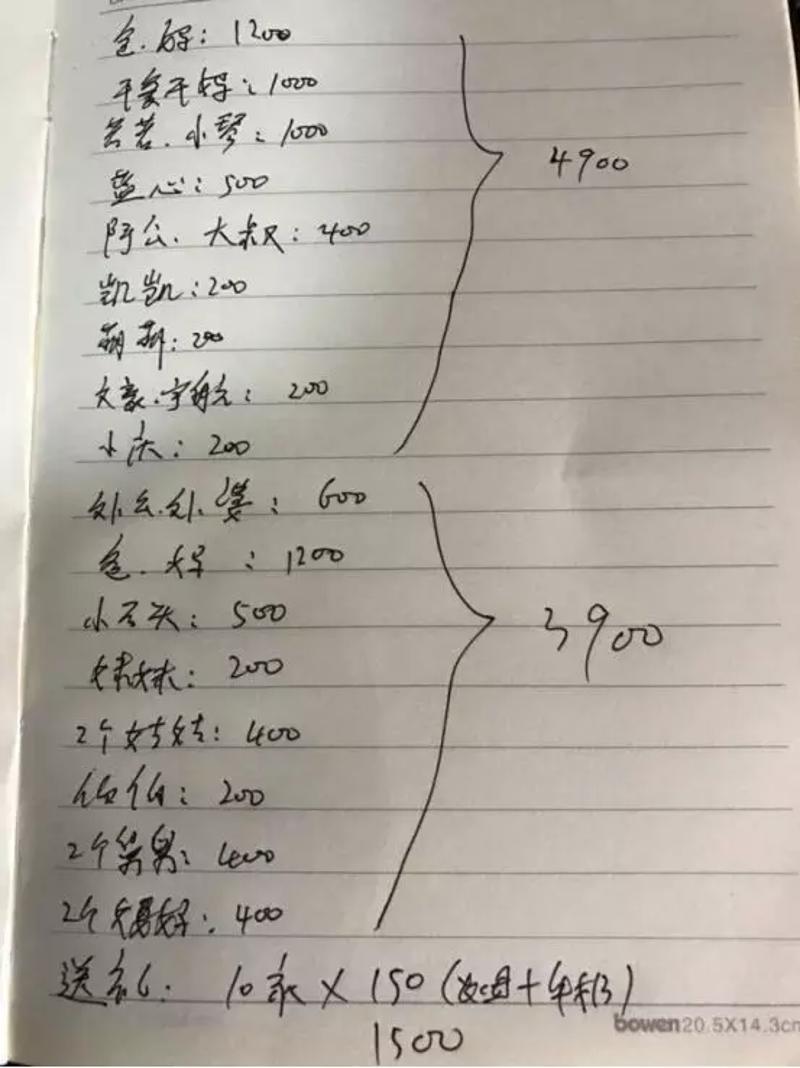 爸.妈：1200
干爹干妈：1000
芸芸.小琴：1000
蓝心：500
阿公.大叔：400
凯凯：200
萌萌：200
文豪.宇航：200
小庆：200
4900
外公.外婆：600
爸.妈：1200
小石头：500
妹妹：200
2个姑姑：400
伯伯：200
2个舅舅：400
2个舅妈：400
3900
送礼：10家×150（烟+牛奶）
1500
bowen 20.5X14.3cm